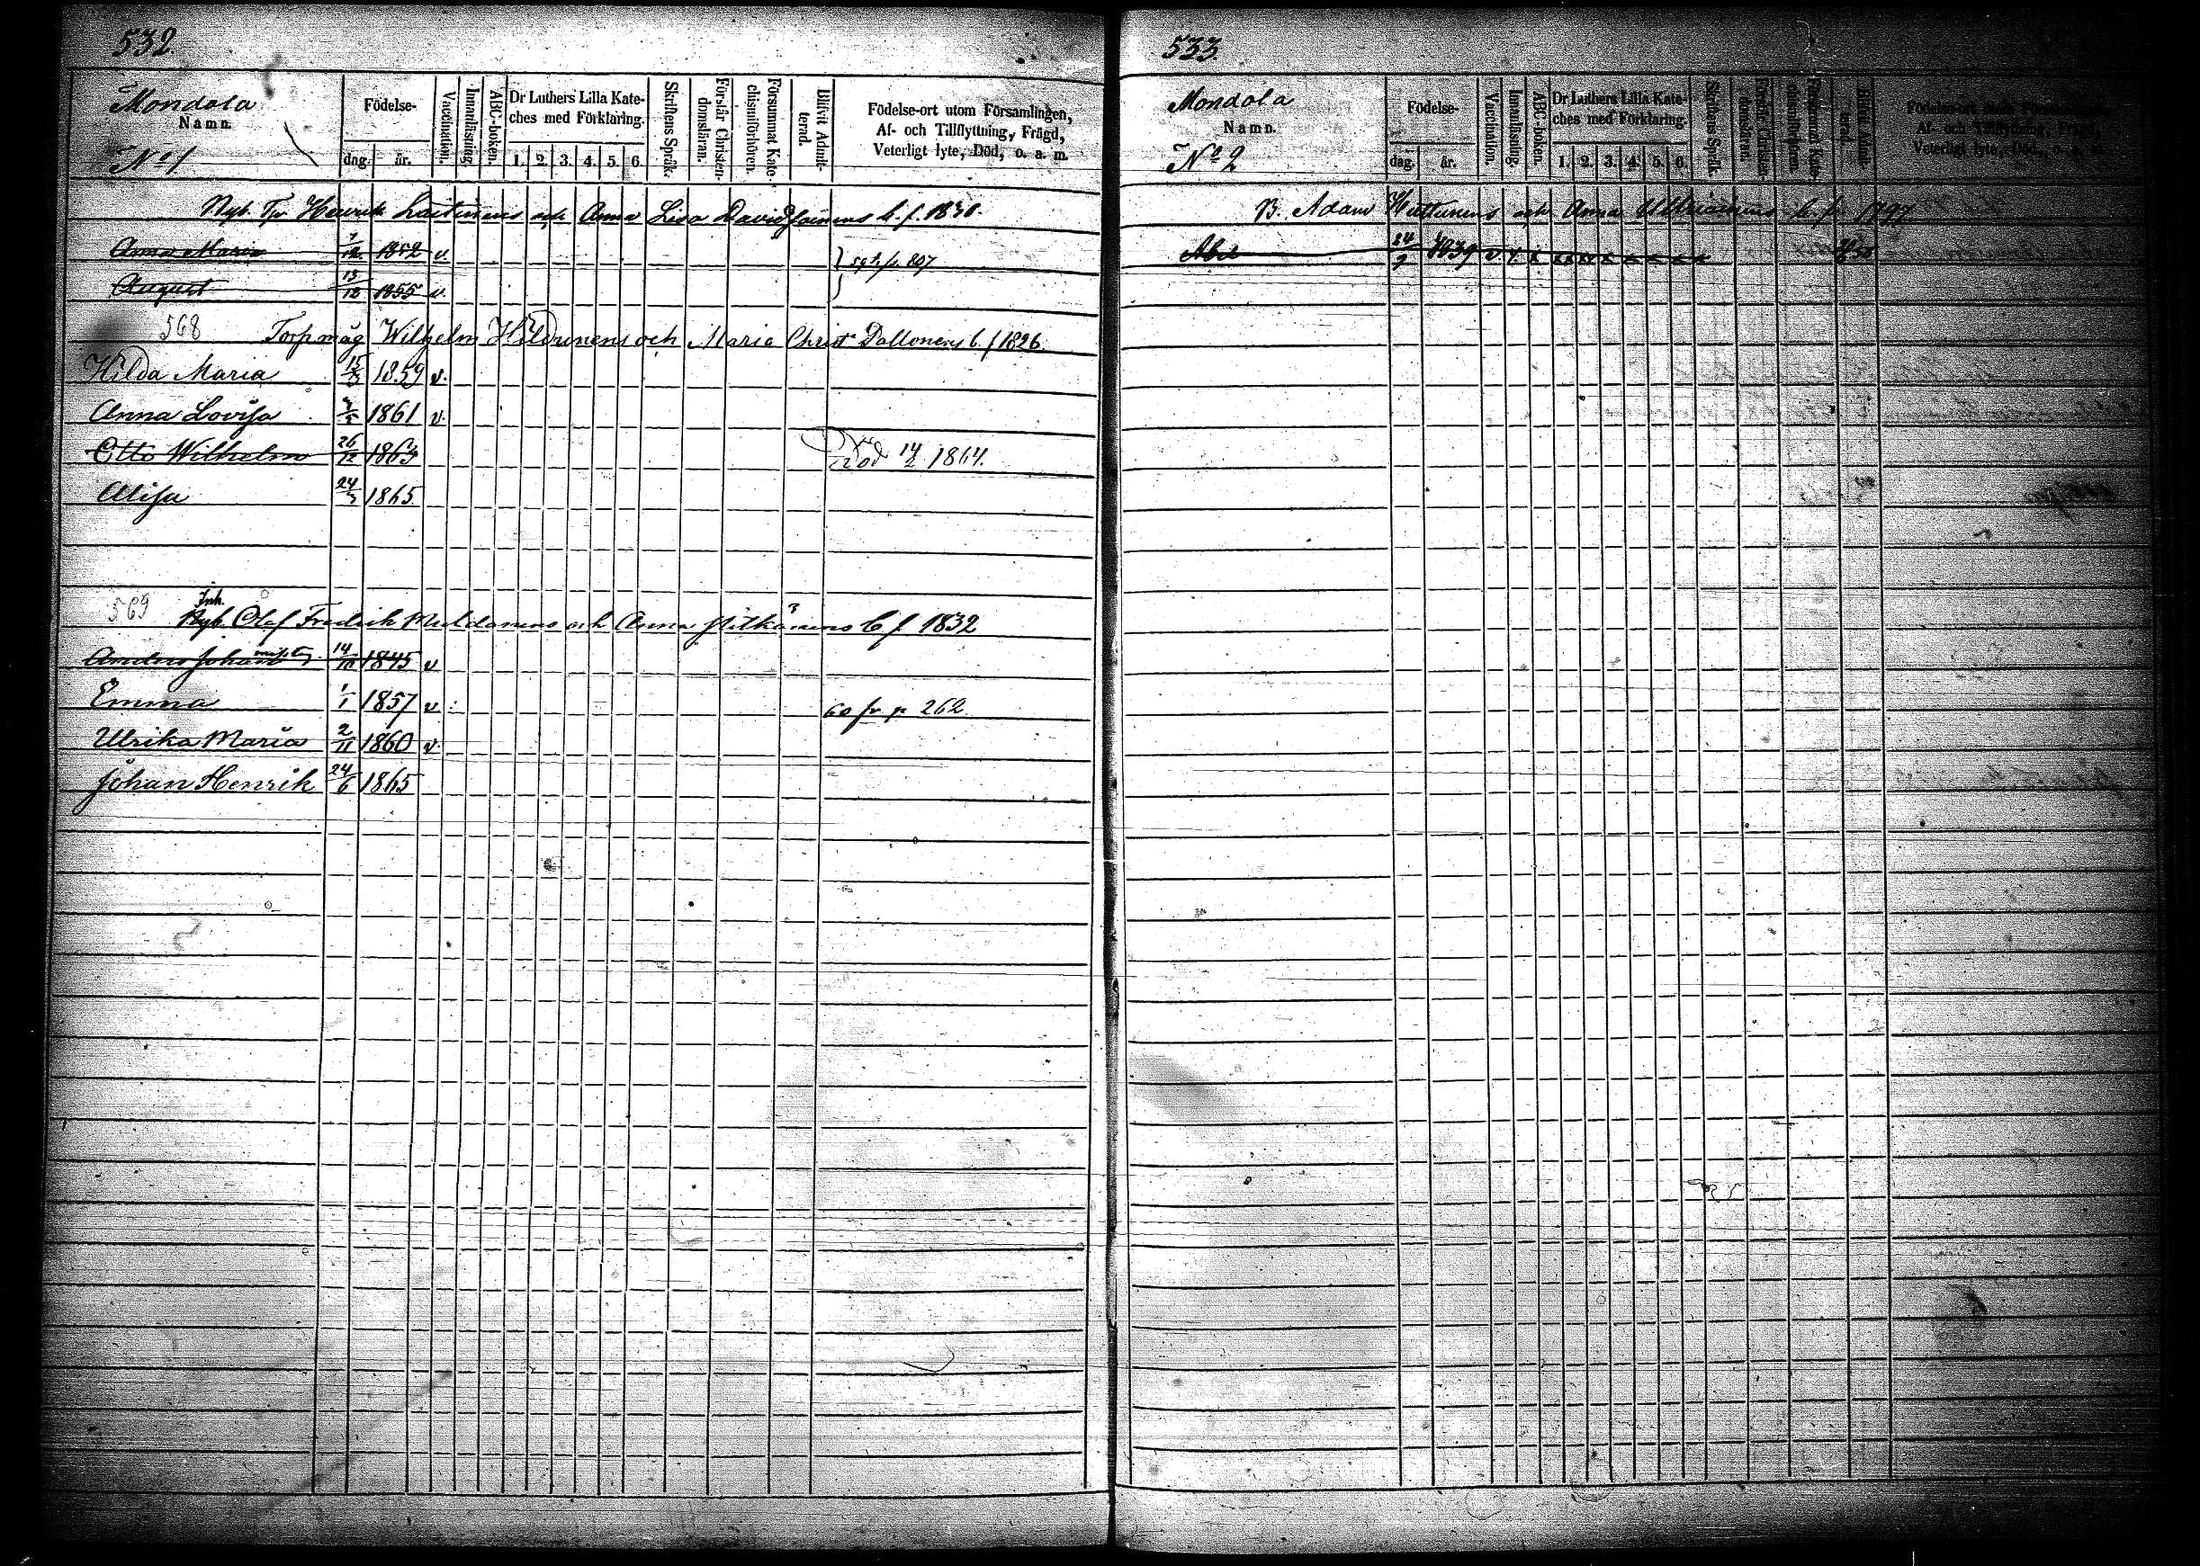 532.
Mondola
Namn.
No 1
Födelse-
dag. år.
Vaccination.
Innanläsning.
ABC-boken.
Dr Luthers Lilla Kate-
ches med Förklaring.
1. 2. 3. 4. 5. 6.
Skriftens Språk.
Förstår Christen-
domsläran.
Försummat Kate-
chismiförhören.
Blifvit Admit-
terad.
Födelse-ort utom Församlingen,
Af- och Tillflyttning, Frägd,
Veterligt lyte, Död, o. a. m.
Nyb. Henrik Lautinens och Anna Lisa Davidsainens b. f. 1830.
Anna Maria 7/12 1852 v.
59 fr. p. 807
August 13/12 1855 v.
568 Torpmåg Wilhelm Hildunens och Maria Christ Dallonens b. f 1826.
Hilda Maria 15/3 1859 v.
Anna Lovisa 1861 v.
Otto Wilhelm 26/12 1863 Död 14/2 1864.
Alisa 24/3 1865
569 Inh.
Nyb. Olaf Fredrik Muldonens och Anna Pitkänens b f 1832
Anders Johan 14/10 1845 v
Emma 1/1 1857 v. 60 fr p 262
Ulrika Maria 2/11 1860 v.
Johan Henrik 24/6 1865
533.
Mondola
Namn.
No 2
Födelse-
dag. år.
Vaccination.
Innanläsning.
ABC-boken.
Dr Luthers Lilla Kate-
ches med Förklaring.
1. 2. 3. 4. 5. 6.
Skriftens Språk.
Förstår Christen-
domsläran.
Försummat Kate-
chismiförhören.
Blifvit Admit-
terad.
Födelse-ort utom Församlingen,
Af- och Tillflyttning,
Veterligt lyte, Död, o. a. m.
B. Adam Huttunens och Anna b. f. 1797.
Abel 24/9 1839 v.